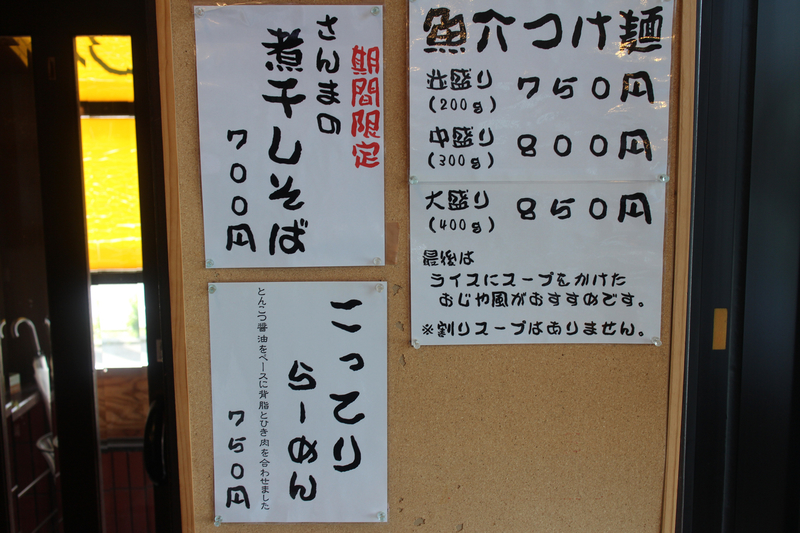 期間限定
さんまの
煮干しそば
700円
魚介つけ麺
並盛り 750円
(200g)
中盛り 800円
(300g)
大盛り 850円
(400g)
最後は
ライスにスープをかけた
おじや風がおすすめです。
※割りスープはありません。
こってり
らーめん
とんこつ醤油をベースに背脂とひき肉を合わせました
750円